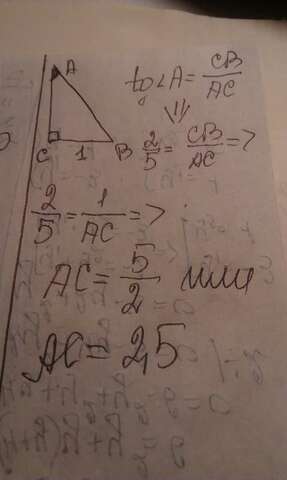 A
C 1 B
tg∠A = CB/AC
⇓
2/5 = CB/AC =>
2/5 = 1/AC =>
AC = 5/2 или
AC = 2,5